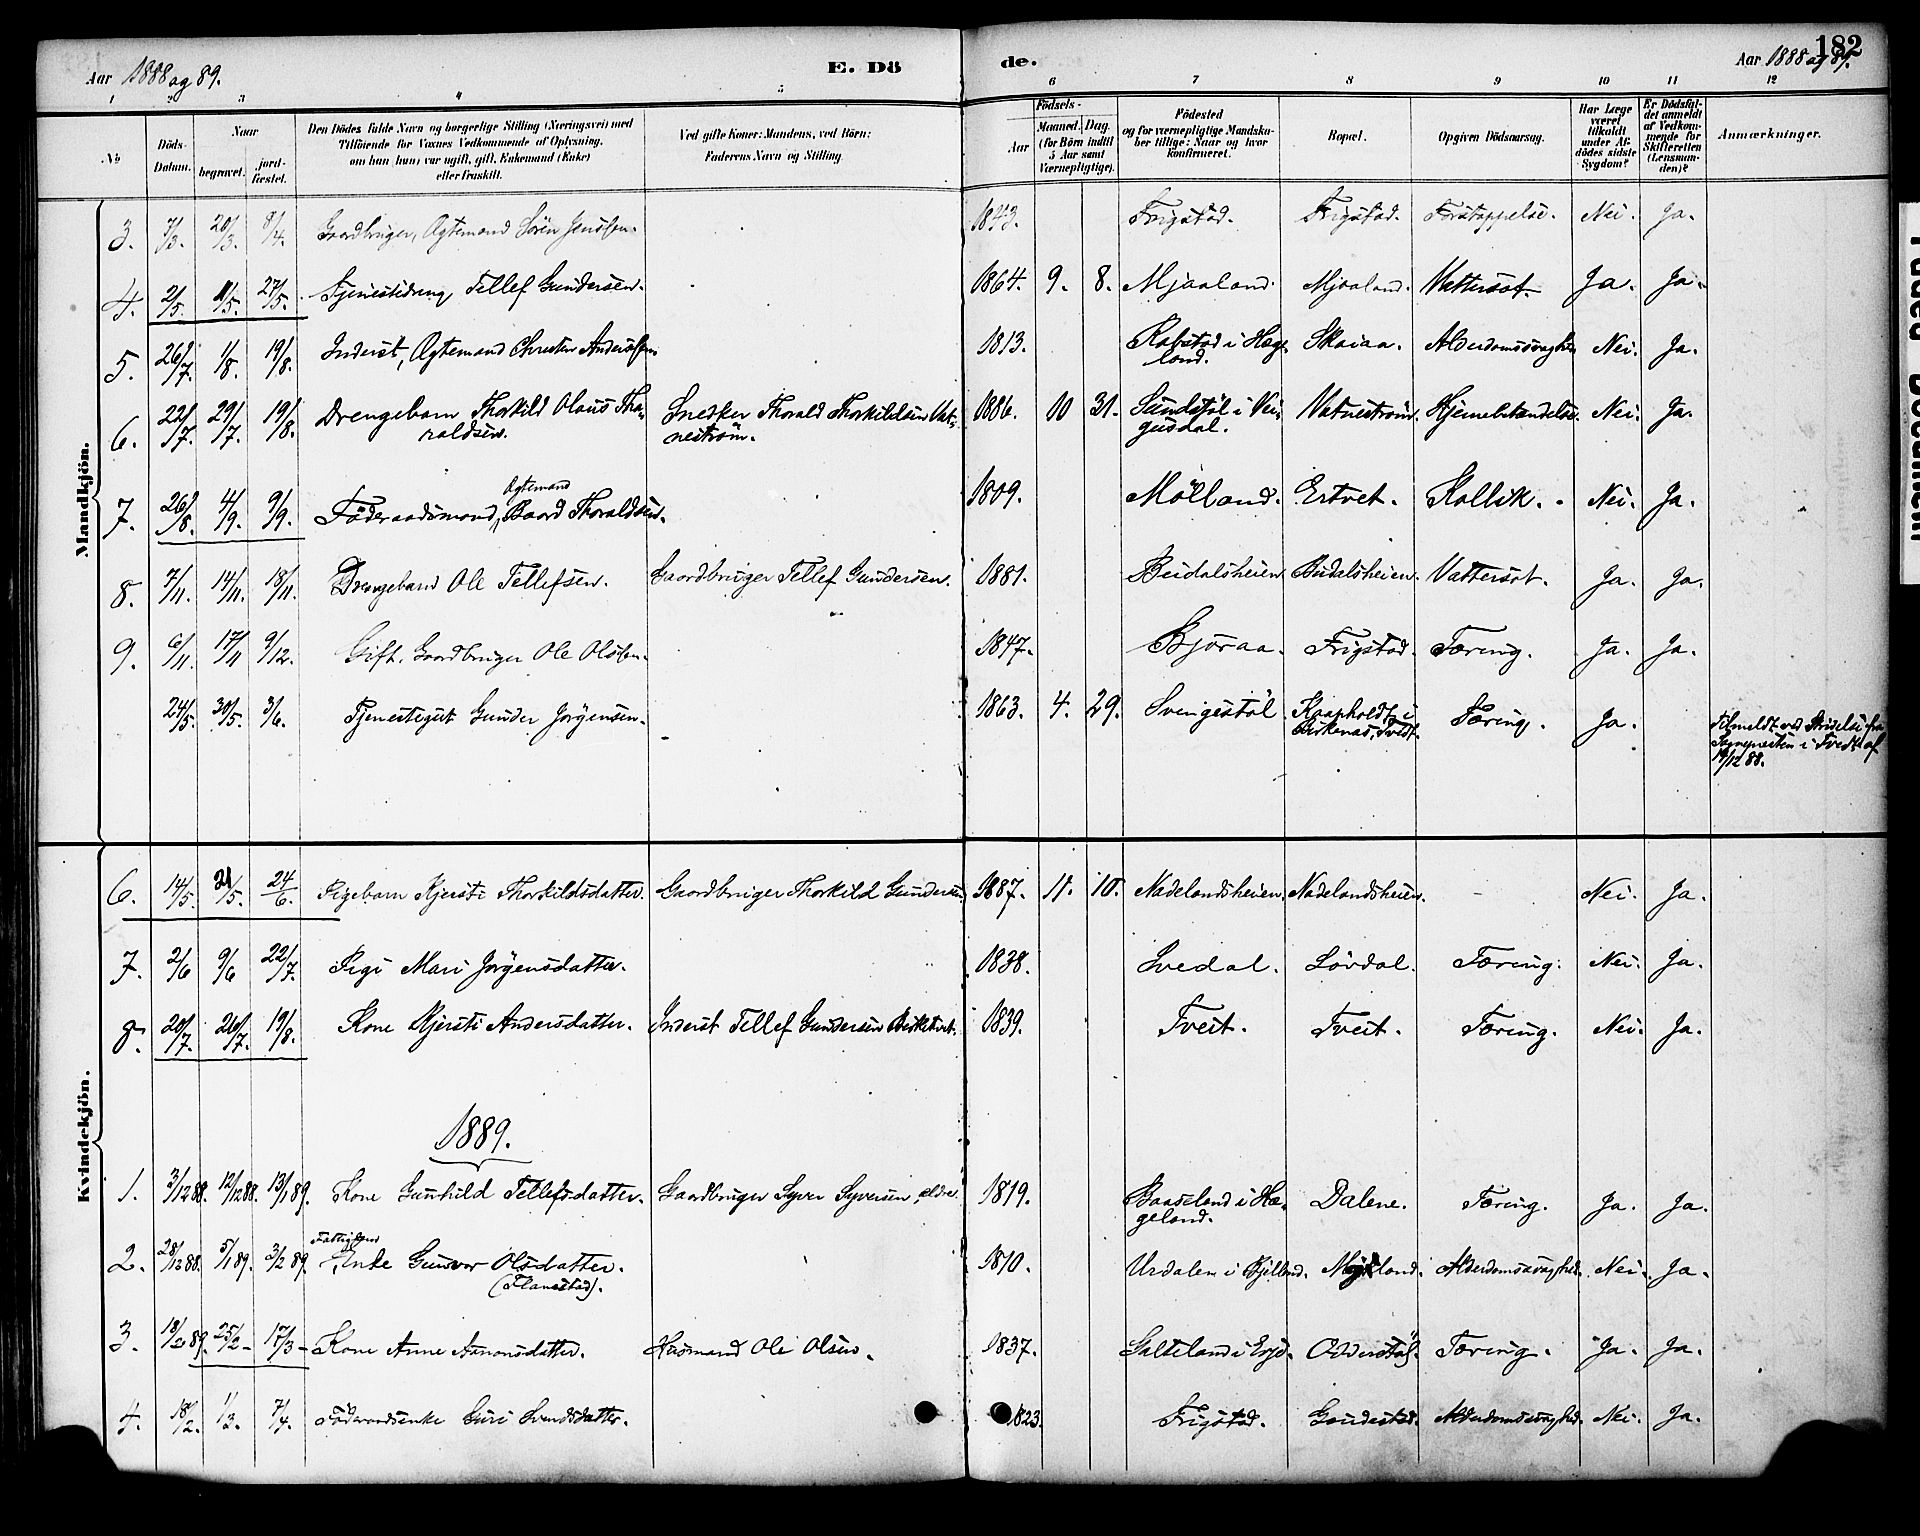 182
Aar 1888 og 89.
E. Dö
de.
Aar 1888 og 89.
1 2 3 4 5 6 7 8 9 10 11 12
No
Döds-Datum.
Naar
begravet.
jordfæstet.
Den Dödes fulde Navn og borgerlige Stilling (Næringsvei) med
Tilföiende for Voxnes Vedkommende af Oplysning,
om han (hun) var ugift, gift, Enkemand (Enke)
eller fraskilt.
Ved gifte Koner: Mandens, ved Börn:
Faderens Navn og Stilling.
Födsels-
Aar
Maaned. Dag.
(for Börn indtil
5 Aar samt
Værnepligtige).
Födested
og for værnepligtige Mandska-
ber tillige: Naar og hvor
konfirmeret.
Bopæl.
Opgiven Dödsaarsag.
Har Læge
været
tilkaldt
under Af-
dödes sidste
Sygdom?
Er Dödsfal-
det anmeldt
af Vedkom-
mende for
Skifteretten
(Lensman-
den)?
Anmærkninger.
Mandkjön.
3. 7/3. 20/3. 8/4. Gaardbruger, Ægtemand Sören Jensen. 1843. Frigstad. Frigstad. Forstoppelse. Nei. Ja.
4. 2/5. 11/5. 27/5. Tjenestedreng Tellef Gundersen. 1864. 9. 8. Mjaaland. Mjaaland. Vattersot. Ja. Ja.
5. 26/7. 1/8. 19/8. Inderst, Ægtemand Christen Andersen 1813. Rabstad i Hæge-
land. Skaiaa. Alderdomssvaghed Nei. Ja.
6. 22/7. 29/7. 19/8. Drengebarn Thorkild Olaus Tho-
raldsen. Snedker Thorald Thorkildsen Vat-
neström. 1886. 10 31. Sundstöl i Vei-
gusdal. Vatneström. Hjernebetændelse. Nei. Ja.
7. 26/8. 4/9. 9/9. Föderaadsmand, Ægtemand Baard Thoraldsen. 1809. Mölland. Ertvet. Kollik. Nei. Ja.
8. 7/11. 14/11. 18/11. Drengebarn Ole Tellefsen. Gaardbruger Tellef Gundersen. 1881. Beidalsheien Beidalsheien. Vattersot. Ja. Ja.
9. 6/11. 17/11 9/12. Gift. Gaardbruger Ole Olsen. 1847. Bjoraa. Frigstad. Tæring. Ja. Ja.
24/5. 30/5. 3/6. Tjenestegut Gunder Jörgensen. 1863. 4. 29. Svingestöl Kaapholdt i
Birkenæs, Tvedt. Tæring. Ja. Tilmeldt ved Skrivelse fra
Sognepresten i Tvedt af
/12 88.
Kvindekjön.
6. 14/5. 21/5. 24/6. Pigebarn Kjersti Thorkildsdatter. Gaardbruger Thorkild Gundersen 1887. 11. 10. Nadelandsheien. Nadelandsheien. - Nei. Ja.
7. 2/6 9/6 22/7. Pige Mari Jörgensdatter. 1838. Svedal. Lövdal. Tæring. Nei. Ja.
8. 20/7. 26/7. 19/8. Kone Kjersti Andersdatter. Inderst Tellef Gundersen Birketvet. 1839. Tveit. Tveit. Tæring. Nei. Ja.
1889.
1. 3/12 88. 12/12 88. 13/1 89. Kone Gunhild Tellefsdatter. Gaardbruger Syver Syversen ældre. 1819. Baaseland i Hæ-
geland. Dalene. Tæring. Ja. Ja.
2. 28/12 88. 5/1 89. 3/2 89. Fattiglem Enke Gunvor Olsdatter.
(Flanestad). 1810. Urdalen i Bjelland. Alderdomssvaghed. Nei. Ja.
3. 18/2 89. 25/2 - 17/3 - Kone Anne Aanonsdatter. Husmand Ole Olsen. 1837. Galteland i Evje. Odderstöl. Tæring. Ja. Ja.
4. 18/2. 1/3. 7/4. Föderaadsenke Guri Svendsdatter. 1823. Frigstad. Alderdomssvaghed. Nei. Ja.